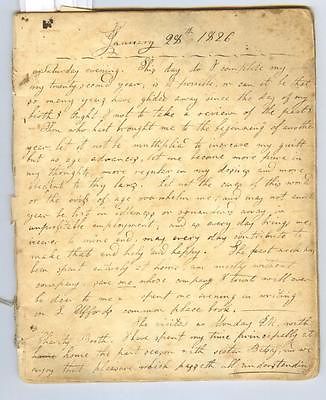 January 28th 1826
Saturday evening. This day do I complete my
my twenty second year; is it possible, or can it be that
so many years have glided away since the day of my
birth & ought I not to take a review of the past?
Thou who hast brought me to the beginning of another
year let it not be multiplied to increase my guilt
but as age advances, let me become more pure in
my thoughts, more regular in my desires and more
obedient to thy laws. Let not the cares of this world
or the evils of age overwhelm me; and may not
year be in idleness or squandered away in
unprofitable employment; and as every day brings me
nearer mine end, may every day contribute to
make that end holy and happy. The past week has
been spent entirely at home, and mostly without
company, save one whose company I trust will ever
be dear to me - spent one evening in writing
on L Uffords common place book.
visited us Monday P.M. with
Charity Booth. I have spent my time principally at
home the past season with sister Betsy,
enjoy that pleasure which passeth all understandin